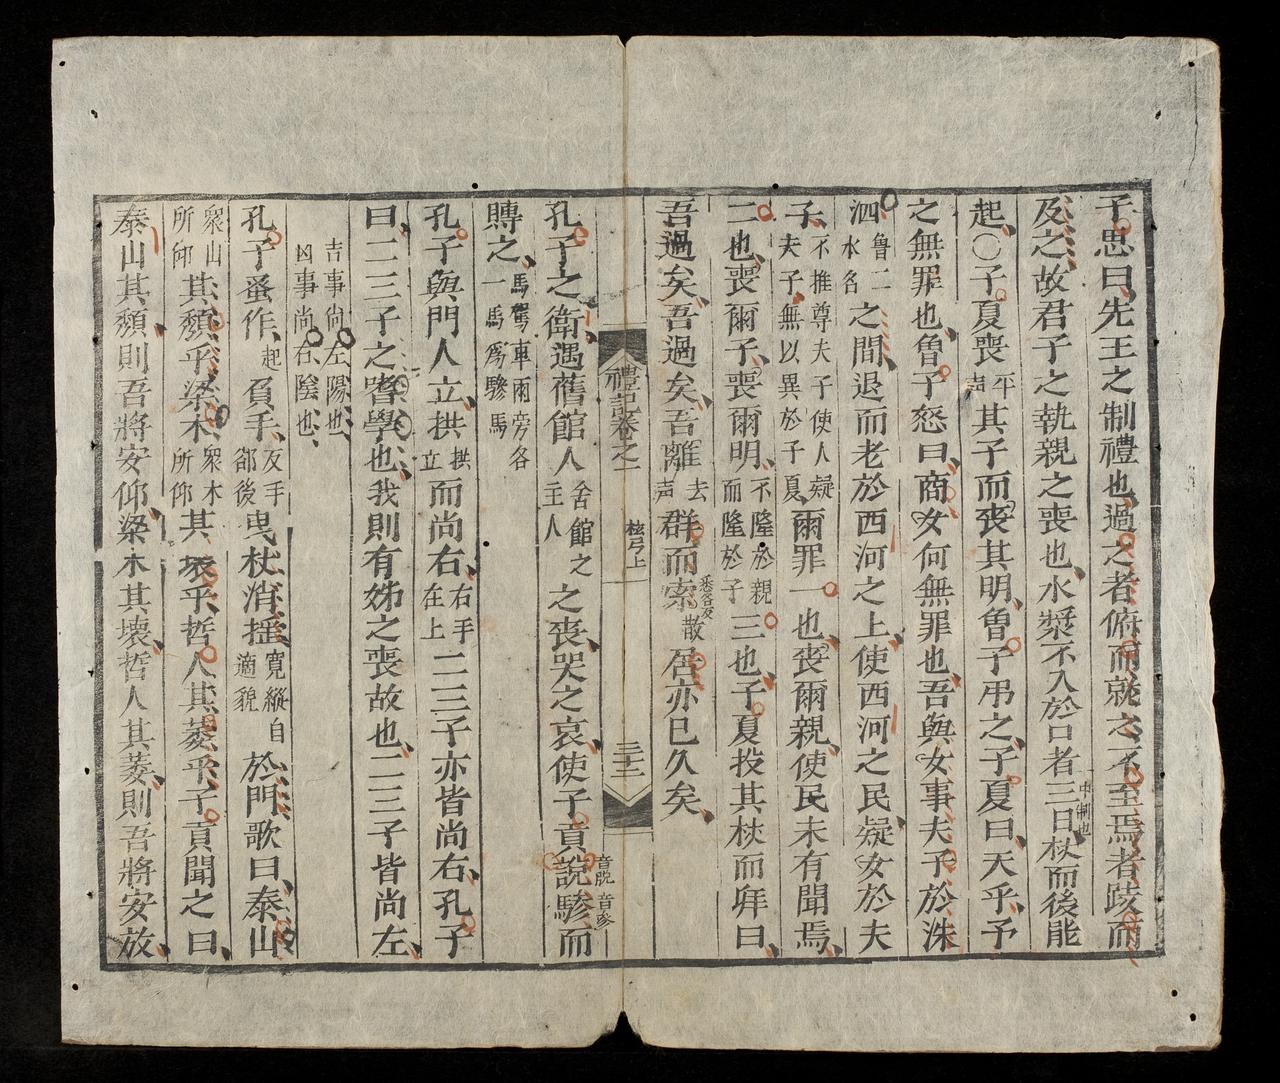 子思曰先王之制禮也過之者俯而就之不至焉者跂而
及之故君子之執親之喪也水漿不入於口者三日杖而後能
中制也
起○子夏喪平声其子而喪其明曾子弔之子夏曰天乎予
之無罪也曾子怒曰商女何無罪也吾與女事夫子於洙
泗魯二水名之間退而老於西河之上使西河之民疑女於夫
子不推尊夫子使人疑夫子無以異於子夏爾罪一也喪爾親使民未有聞焉
二也喪爾子喪爾明不隆於親而隆於子三也子夏投其杖而拜曰
吾過矣吾過矣吾離去声群而索悉各反散居亦已久矣
禮記卷之一 檀弓上 三十二
孔子之衛遇舊館人舍館之主人之喪哭之哀使子貢說驂而
音脫 音參
賻之馬駕車兩旁各一馬為驂馬
孔子與門人立拱拱立而尚右右手在上二三子亦皆尚右孔子
曰二三子之嗜學也我則有姊之喪故也二三子皆尚左
吉事尚左陽也凶事尚右陰也
孔子蚤作起負手反手卻後曳杖消搖寬縱自適貌於門歌曰泰山
眾山所仰其頹乎梁木眾木所仰其壞乎哲人其萎乎子貢聞之曰
泰山其頹則吾將安仰梁木其壞哲人其萎則吾將安放